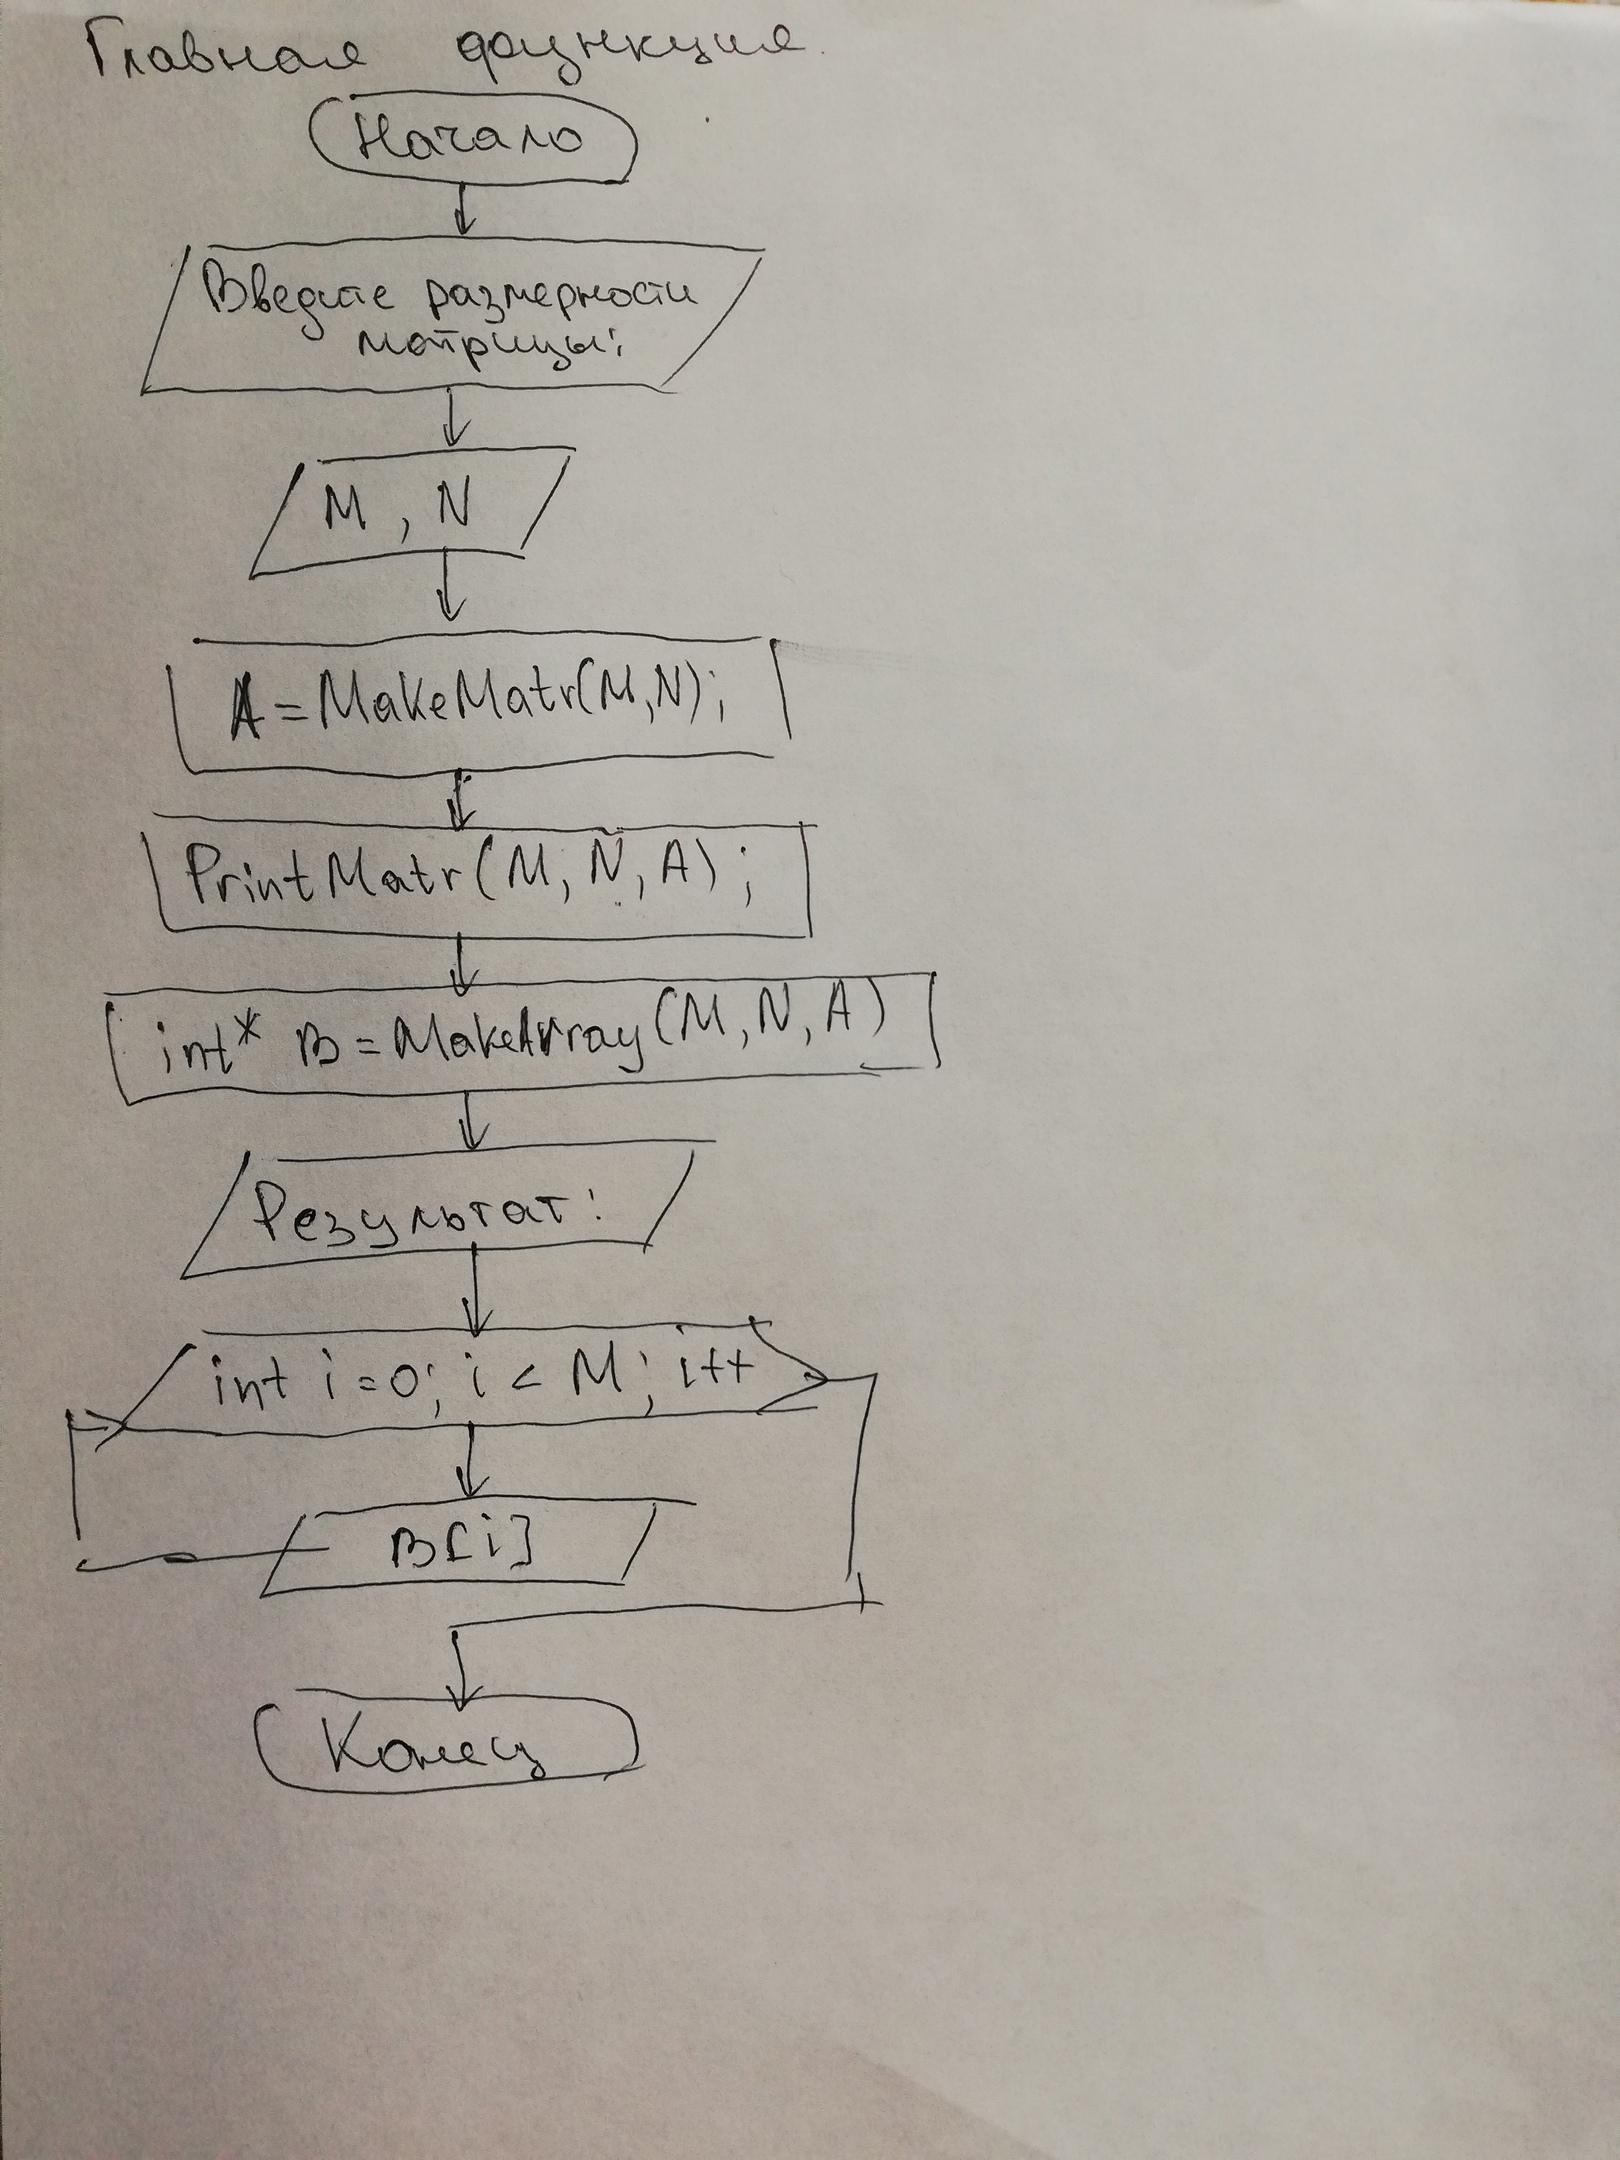 Главная функция.
Начало
Введите размерности
матрицы:
M, N
A=MakeMatr(M,N);
PrintMatr(M, N, A);
int* B=MakeArray(M,N,A)
Результат:
int i=0; i < M; i++
B[i]
Конец